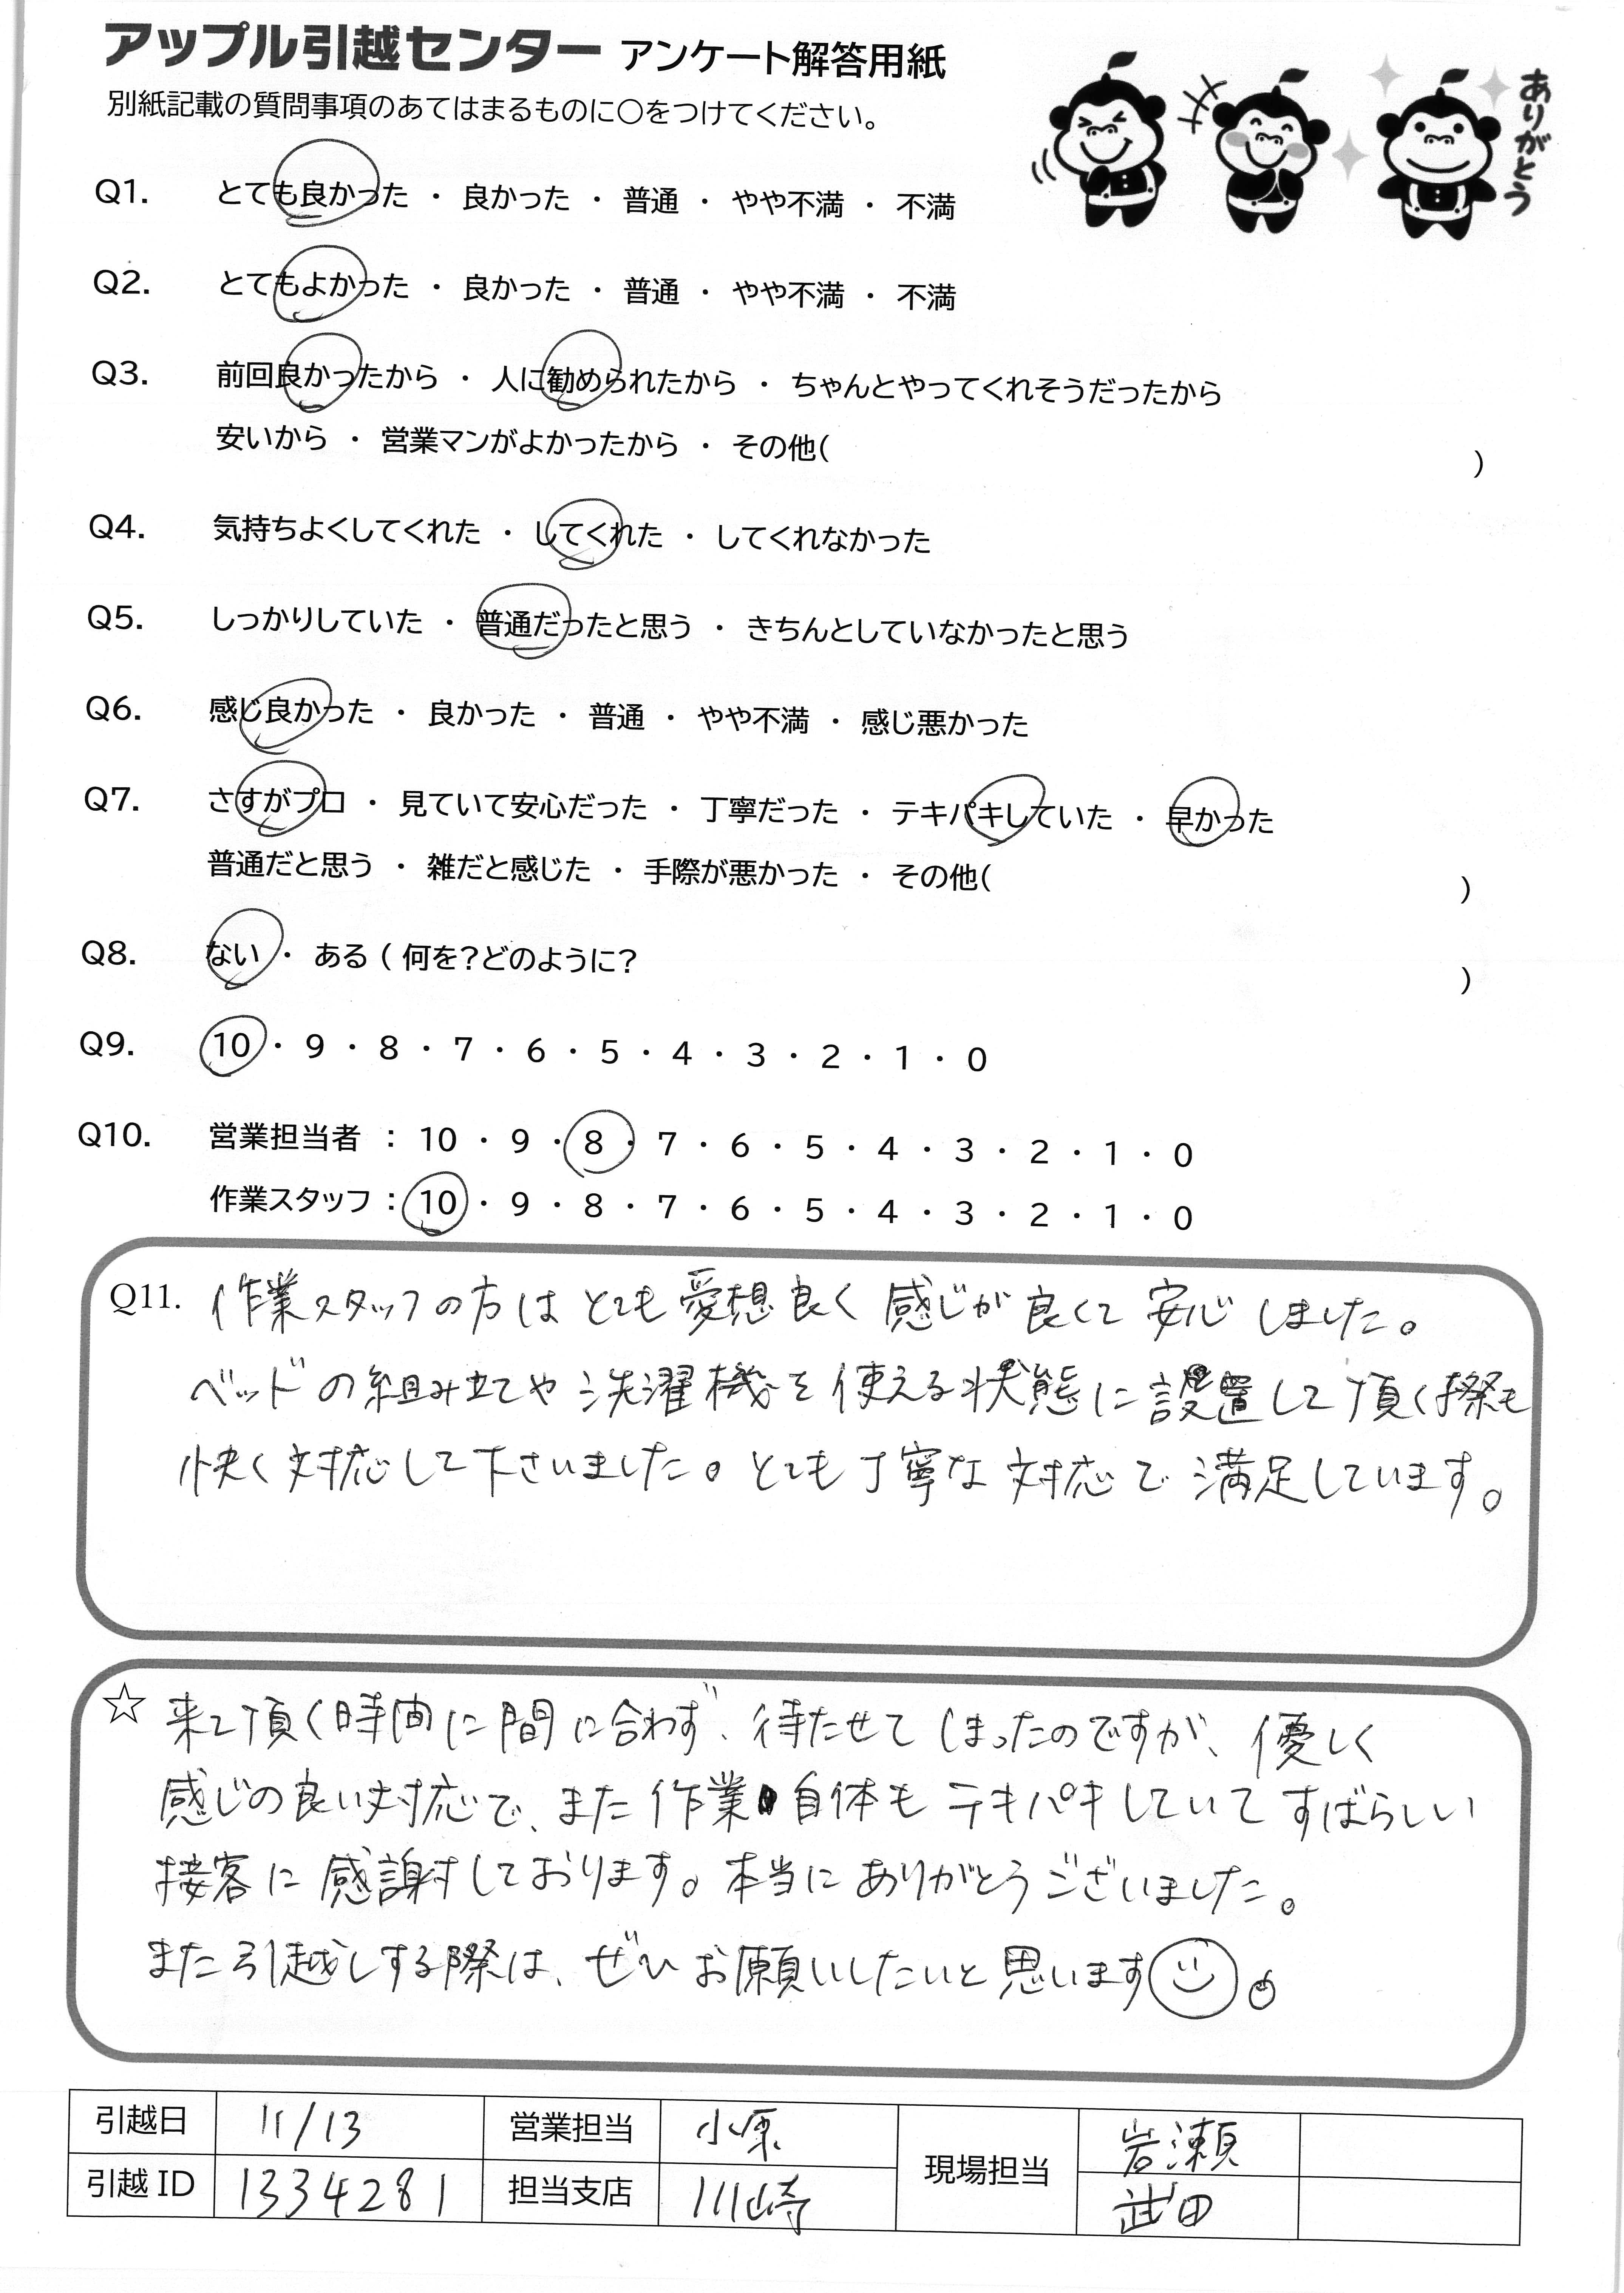 アップル引越センター アンケート解答用紙
別紙記載の質問事項のあてはまるものに〇をつけてください。
ありがとう
Q1. とても良かった ・ 良かった ・ 普通 ・ やや不満 ・ 不満
Q2. とてもよかった ・ 良かった ・ 普通 ・ やや不満 ・ 不満
Q3. 前回良かったから ・ 人に勧められたから ・ ちゃんとやってくれそうだったから
安いから ・ 営業マンがよかったから ・ その他( )
Q4. 気持ちよくしてくれた ・ してくれた ・ してくれなかった
Q5. しっかりしていた ・ 普通だったと思う ・ きちんとしていなかったと思う
Q6. 感じ良かった ・ 良かった ・ 普通 ・ やや不満 ・ 感じ悪かった
Q7. さすがプロ ・ 見ていて安心だった ・ 丁寧だった ・ テキパキしていた ・ 早かった
普通だと思う ・ 雑だと感じた ・ 手際が悪かった ・ その他( )
Q8. ない ・ ある ( 何を?どのように? )
Q9. 10 ・ 9 ・ 8 ・ 7 ・ 6 ・ 5 ・ 4 ・ 3 ・ 2 ・ 1 ・ 0
Q10. 営業担当者 : 10 ・ 9 ・ 8 ・ 7 ・ 6 ・ 5 ・ 4 ・ 3 ・ 2 ・ 1 ・ 0
作業スタッフ : 10 ・ 9 ・ 8 ・ 7 ・ 6 ・ 5 ・ 4 ・ 3 ・ 2 ・ 1 ・ 0
Q11. 作業スタッフの方はとても愛想良く感じが良くて安心しました。
ベッドの組み立てや洗濯機を使える状態に設置して頂く際も
快く対応して下さいました。とても丁寧な対応で満足しています。
☆ 来て頂く時間に間に合わず、待たせてしまったのですが、優しく
感じの良い対応で、また作業自体もテキパキしていてすばらしい
接客に感謝しております。本当にありがとうございました。
また引越しする際は、ぜひお願いしたいと思います。
引越日 11/13 営業担当 小原 現場担当 岩瀬
引越ID 1334281 担当支店 川崎 武田